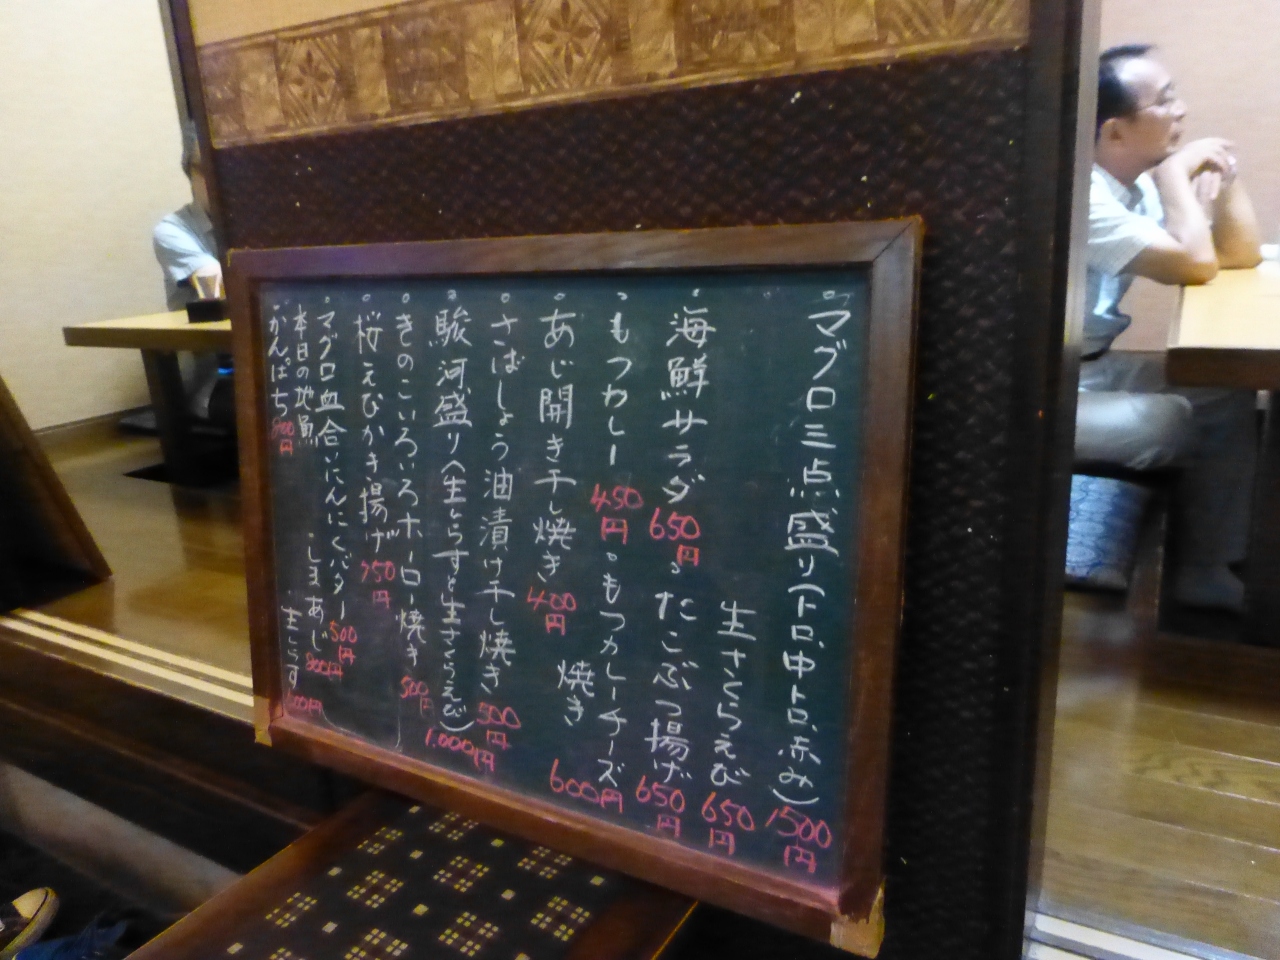 ・マグロ三点盛り(トロ、中トロ、赤み)1500円
生さくらえび 650円
・海鮮サラダ 650円
・たこぶつ揚げ 650円
・もつカレー 450円
・もつカレーチーズ焼き 600円
・あじ開き干し焼き 400円
・さばしょう油漬け干し焼き 500円
・駿河盛り(生しらすと生さくらえび)1,000円
・きのこいろいろホーロー焼き 500円
・桜えびかき揚げ 750円
・マグロ血合いにんにくバター 500円
本日の地魚
・しまあじ 800円
・かんぱち 800円
生しらす 600円